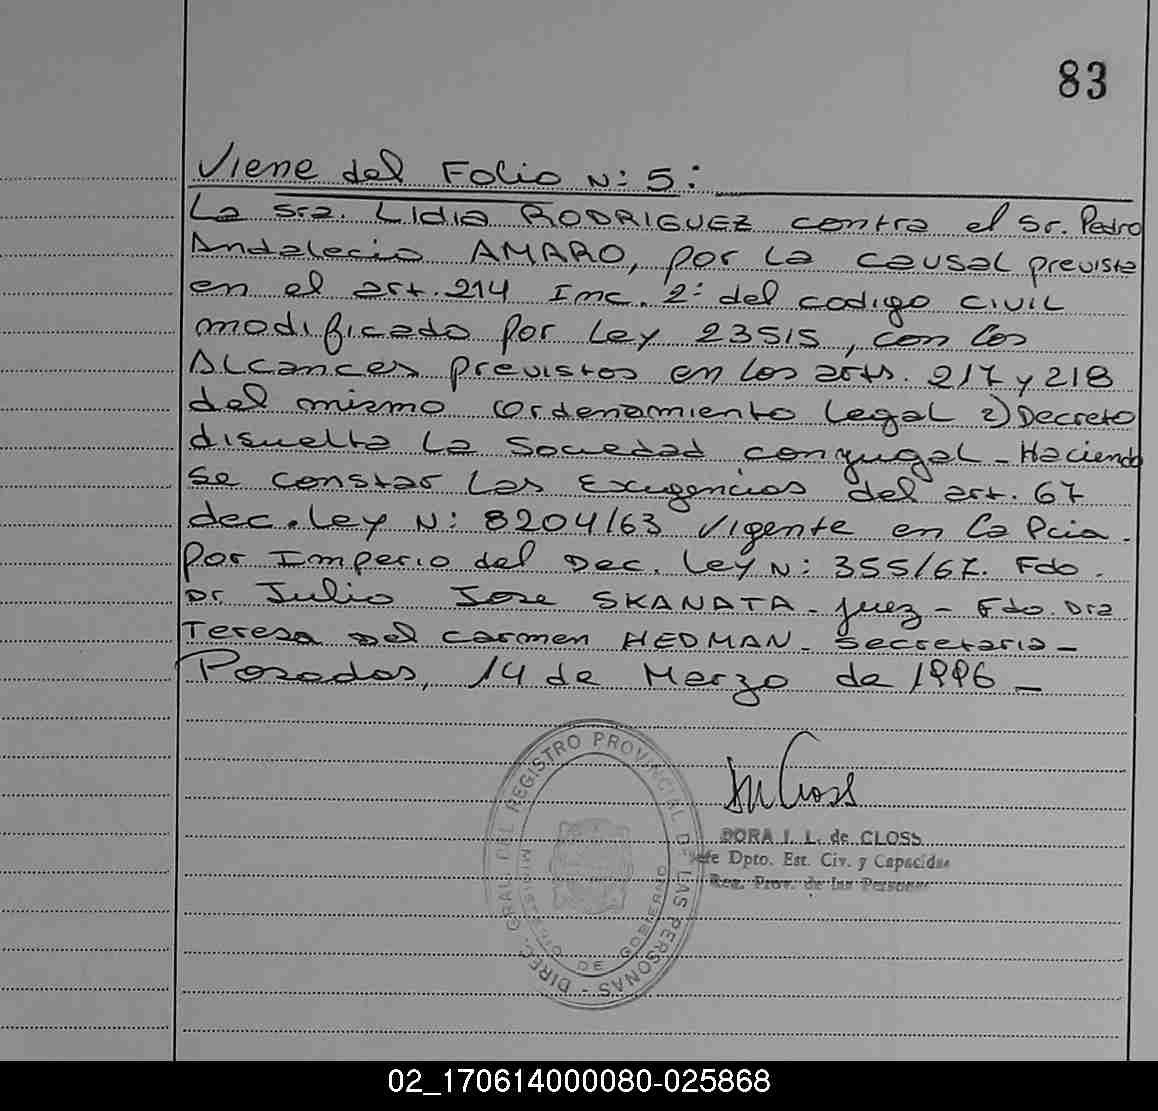 83
Viene del Folio N: 5:
La Sra. Lidia RODRIGUEZ contra el Sr. Pedro
Andalecio AMARO, por la causal prevista
en el art. 214 Inc. 2: del codigo CIVIL
modificado por Ley 23515, con los
Alcances previstos en los arts. 217 y 218
del mismo ordenamiento legal 2) Decreto
disuelta La Sociedad conyugal - Haciendo
se constar Las Exigencias del art. 67
dec. Ley N: 8204/63 Vigente en la Pcia.
por Imperio del Dec. Ley N: 355/67. Fdo.
Dr Julio Jose SKANATA - Juez - Fdo. Dra
Teresa del Carmen HEDMAN - Secretaria -
Posadas, 14 de Marzo de 1996 -
DIREC. GRAL. DEL REGISTRO PROVINCIAL DE LAS PERSONAS -
MINISTERIO DE GOBIERNO
DORA I. L. de CLOSS
Jefe Dpto. Est. Civ. y Capacidad
Reg. Prov. de las Personas
02_170614000080-025868